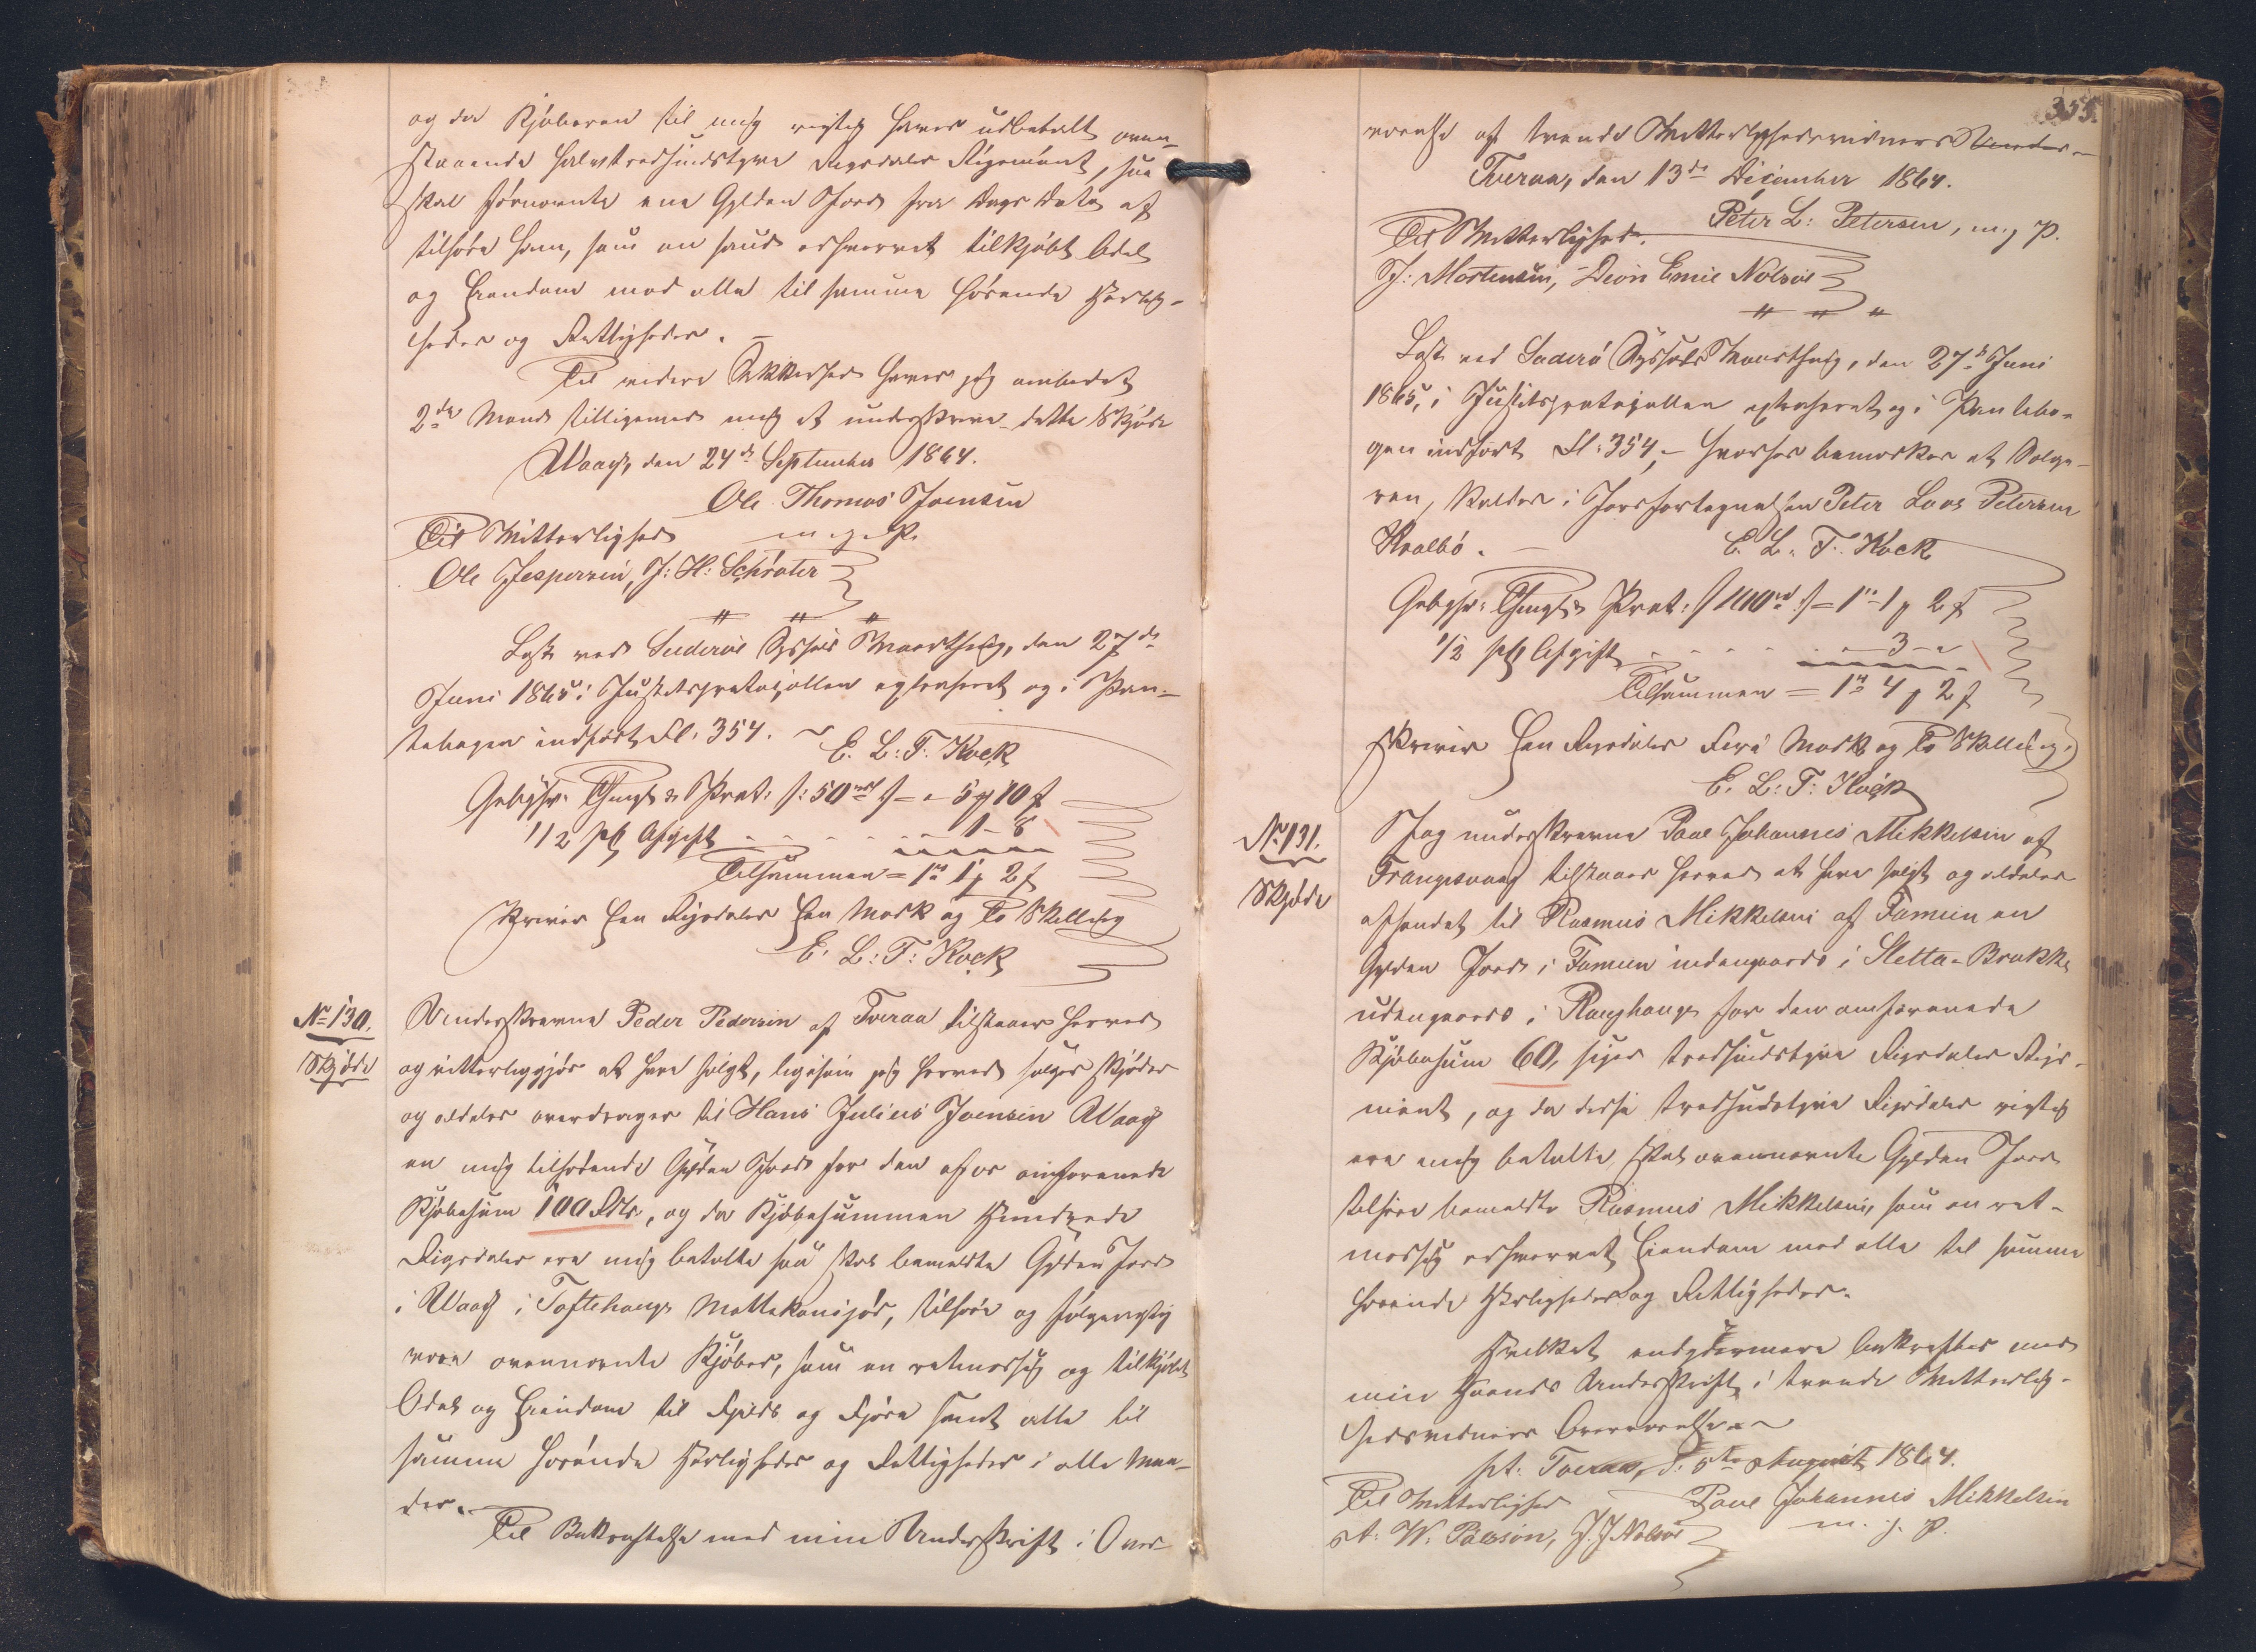 og da Kjøberen til mig rigtig haver udbetalt oven-
staaende halvtredsindstyve Rigsdaler Rigsmönt, saa
skal fornævnte ene Gylden Jord fra Dags Dato af
tilhøre ham, som en sand erhvervet tilkjøbt Odel
og Eiendom med alle til samme hørende Herlig-
heder og Rettigheder. —
Til videre Sikkerhed haver jeg ombedet
2de Mænd tilligemed mig at underskrive dette Skjøde
Waag, den 24de September 1864.
Ole Thomas Joensen
Til Vitterlighed m. p.
Ole Jespersen, J: H: Schrøter
" " "
Læst ved Suderøe Syssels Vaarthing, den 27de
Juni 1865 i Justitsprotojollen extraheret og i Pan-
tebogen indført Fl. 354. ~
E. L: F. Kock
Gebyhr: Thingl & Prot: /: 50 rd :/ - " - 5 ß 10 f
1/2 pCt Afgift - - - - 1 - 8
Tilsammen = 1 rd 1 ß 2 f
skriver Een Rigsdaler Een Mark og To Skelling
E. L: F: Kock
No 130.
Skjøde
Underskrevne Peder Pedersen af Tveraa tilstaaer herved
og vitterliggjør at have solgt, ligesom jeg herved sælger skjøder
og aldeles overdrager til Hans Julius Joensen Waag
en mig tilhørende Gylden Jord for den af os omforenede
Kjøbesum 100 Rdlr, og da Kjøbesummen Hundrede
Rigsdaler ere mig betalte saa skal bemeldte Gylden Jord
i Waag i Toftehauge Mattekonsjør, tilhøre og følgagtig
være ovennævnte Kjøber, som en retmæssig og tilkjøbt
Odel og Eiendom til Fjelds og Fjøre samt alle til
samme hørende Herligheder og Rettigheder i alle Maa-
der. —
Til Bekræftelse med min Underskrift i Over-
355.
værelse af tvende Vitterlighedsvidners Under-
Tveraa, den 13de December 1864.
Peter L: Petersen, m. p.
Til Vitterlighed.
J: Mortensen, Dion Emil Nolsøe
" " "
Læst ved Suderö Syssels Vaarthing, den 27de Juni
1865, i Justitsprotojollen extraheret og i Pantebo-
gen indført Fl: 354, - hvorhos bemærkes at Sælge-
ren, kaldes i Jordfortegnelsen Peter Laos Petersen
Kvalbö. —
E. L. F. Kock
Gebyhr: Thingl & Prot: /: 100 rd :/ = 1 rd 1 ß 2 f
1/2 pCt Afgift - - - - 3 - "
Tilsammen = 1 rd 4 ß 2 f
skriver Een Rigsdaler Fire Mark og To Skelling.
E. L: F: Kock
No 131.
Skjøde
Jeg underskrevne Poul Johannes Mikkelsen af
Frangsvaag tilstaaer herved at have solgt og aldeles
afhændet til Rasmus Mikkelsen af Famien en
Gylden Jord i Famien indengaards i Sletta-Brekke
udengaards i Ranghauge for den omforenede
Kjøbesum 60, siger tredsindstyve Rigsdaler Rigs-
mønt, og da disse tredsindstyve Rigsdaler rigtig
ere mig betalte, skal ovennævnte Gylden Jord
tilhøre bemeldte Rasmus Mikkelsen, som en ret-
mæssig erhvervet Eiendom med alle til samme
hørende Herligheder og Rettigheder.
Hvilket endydermere bekræftes med
min Haands Underskrift i tvende Vitterlig-
hedsvidners Overværelse. ~
pt: Tveraa, d: 5te August 1864.
Poul Johannes Mikkelsen
Til Vitterlighed m. p.
A. W. Poulson, J. J Nolsøe